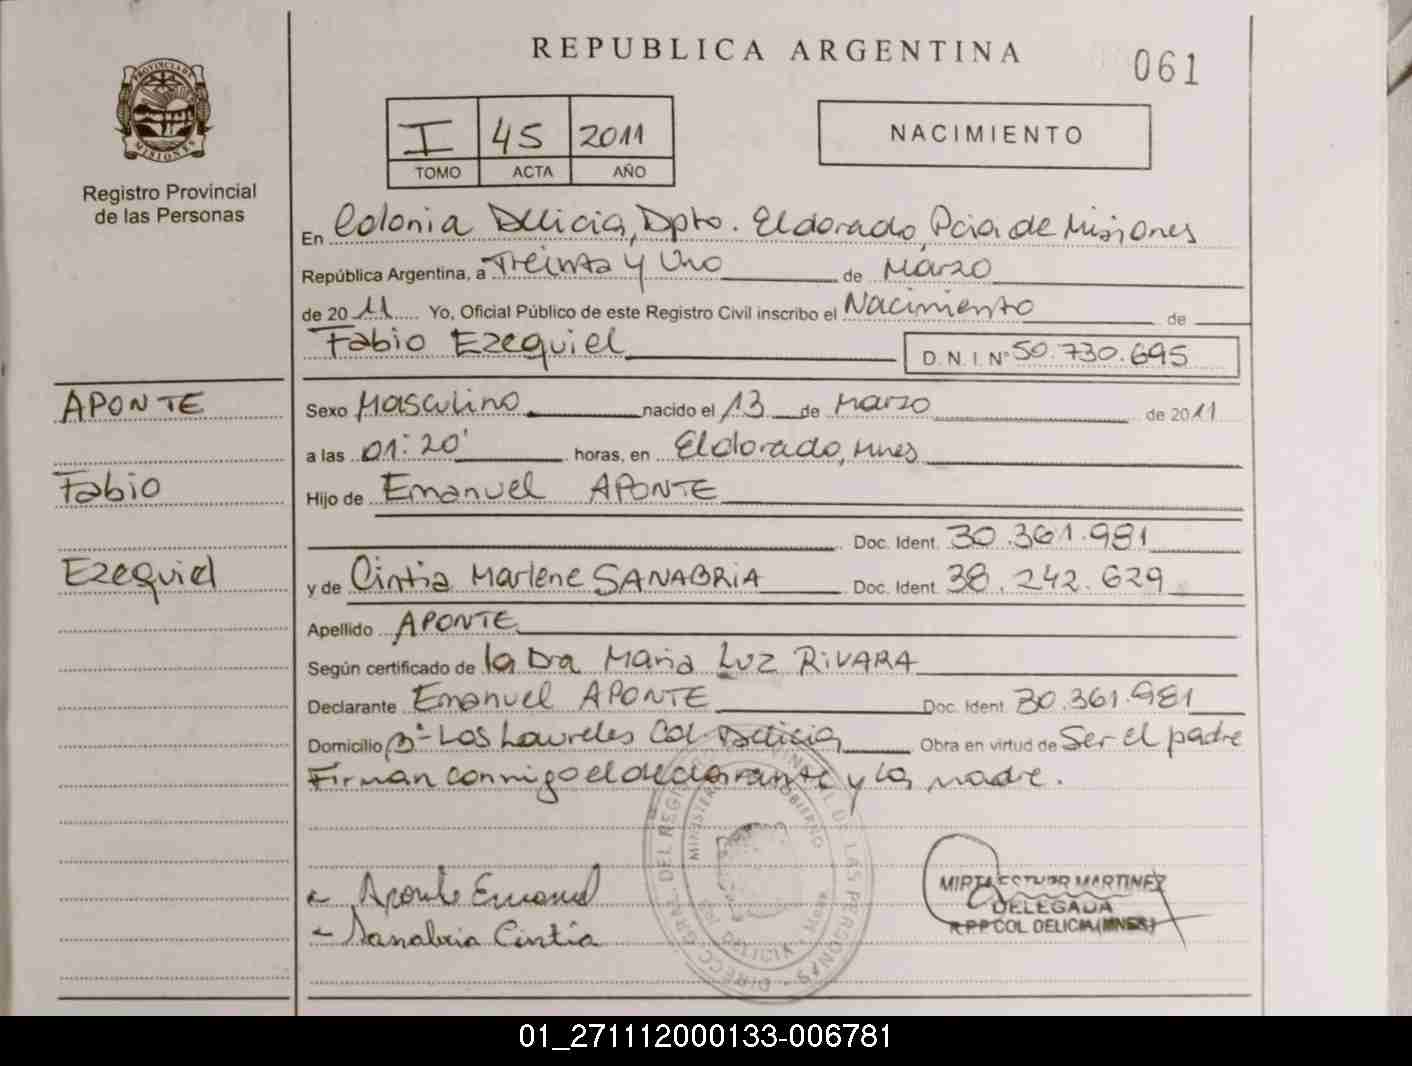 REPUBLICA ARGENTINA
061
PROVINCIA DE
MISIONES
Registro Provincial
de las Personas
I 45 2011
TOMO ACTA AÑO
NACIMIENTO
En Colonia Delicia, Dpto. Eldorado, Pcia de Misiones
República Argentina, a Treinta y Uno de Marzo
de 2011 Yo, Oficial Público de este Registro Civil inscribo el Nacimiento de
Fabio Ezequiel D.N.I. Nº 50.730.695
APONTE
Fabio
Ezequiel
Sexo Masculino nacido el 13 de Marzo de 2011
a las 01:20' horas, en Eldorado, Mnes
Hijo de Emanuel APONTE
Doc. Ident. 30.361.981
y de Cintia Marlene SANABRIA Doc. Ident. 38.242.629
Apellido APONTE
Según certificado de la Dra Maria Luz RIVARA
Declarante Emanuel APONTE Doc. Ident. 30.361.981
Domicilio Bº Los Laureles Col Delicia Obra en virtud de Ser el padre
Firman conmigo el declarante y la madre.
Aponte Emanuel
Sanabria Cintia
MIRTA MARTINEZ
DELEGADA
R.P.P COL DELICIA (MNES)
DIRECC. GRAL. DEL REGISTRO DE LAS PERSONAS
MINISTERIO GOBIERNO
DELICIA - Mnes
01_271112000133-006781